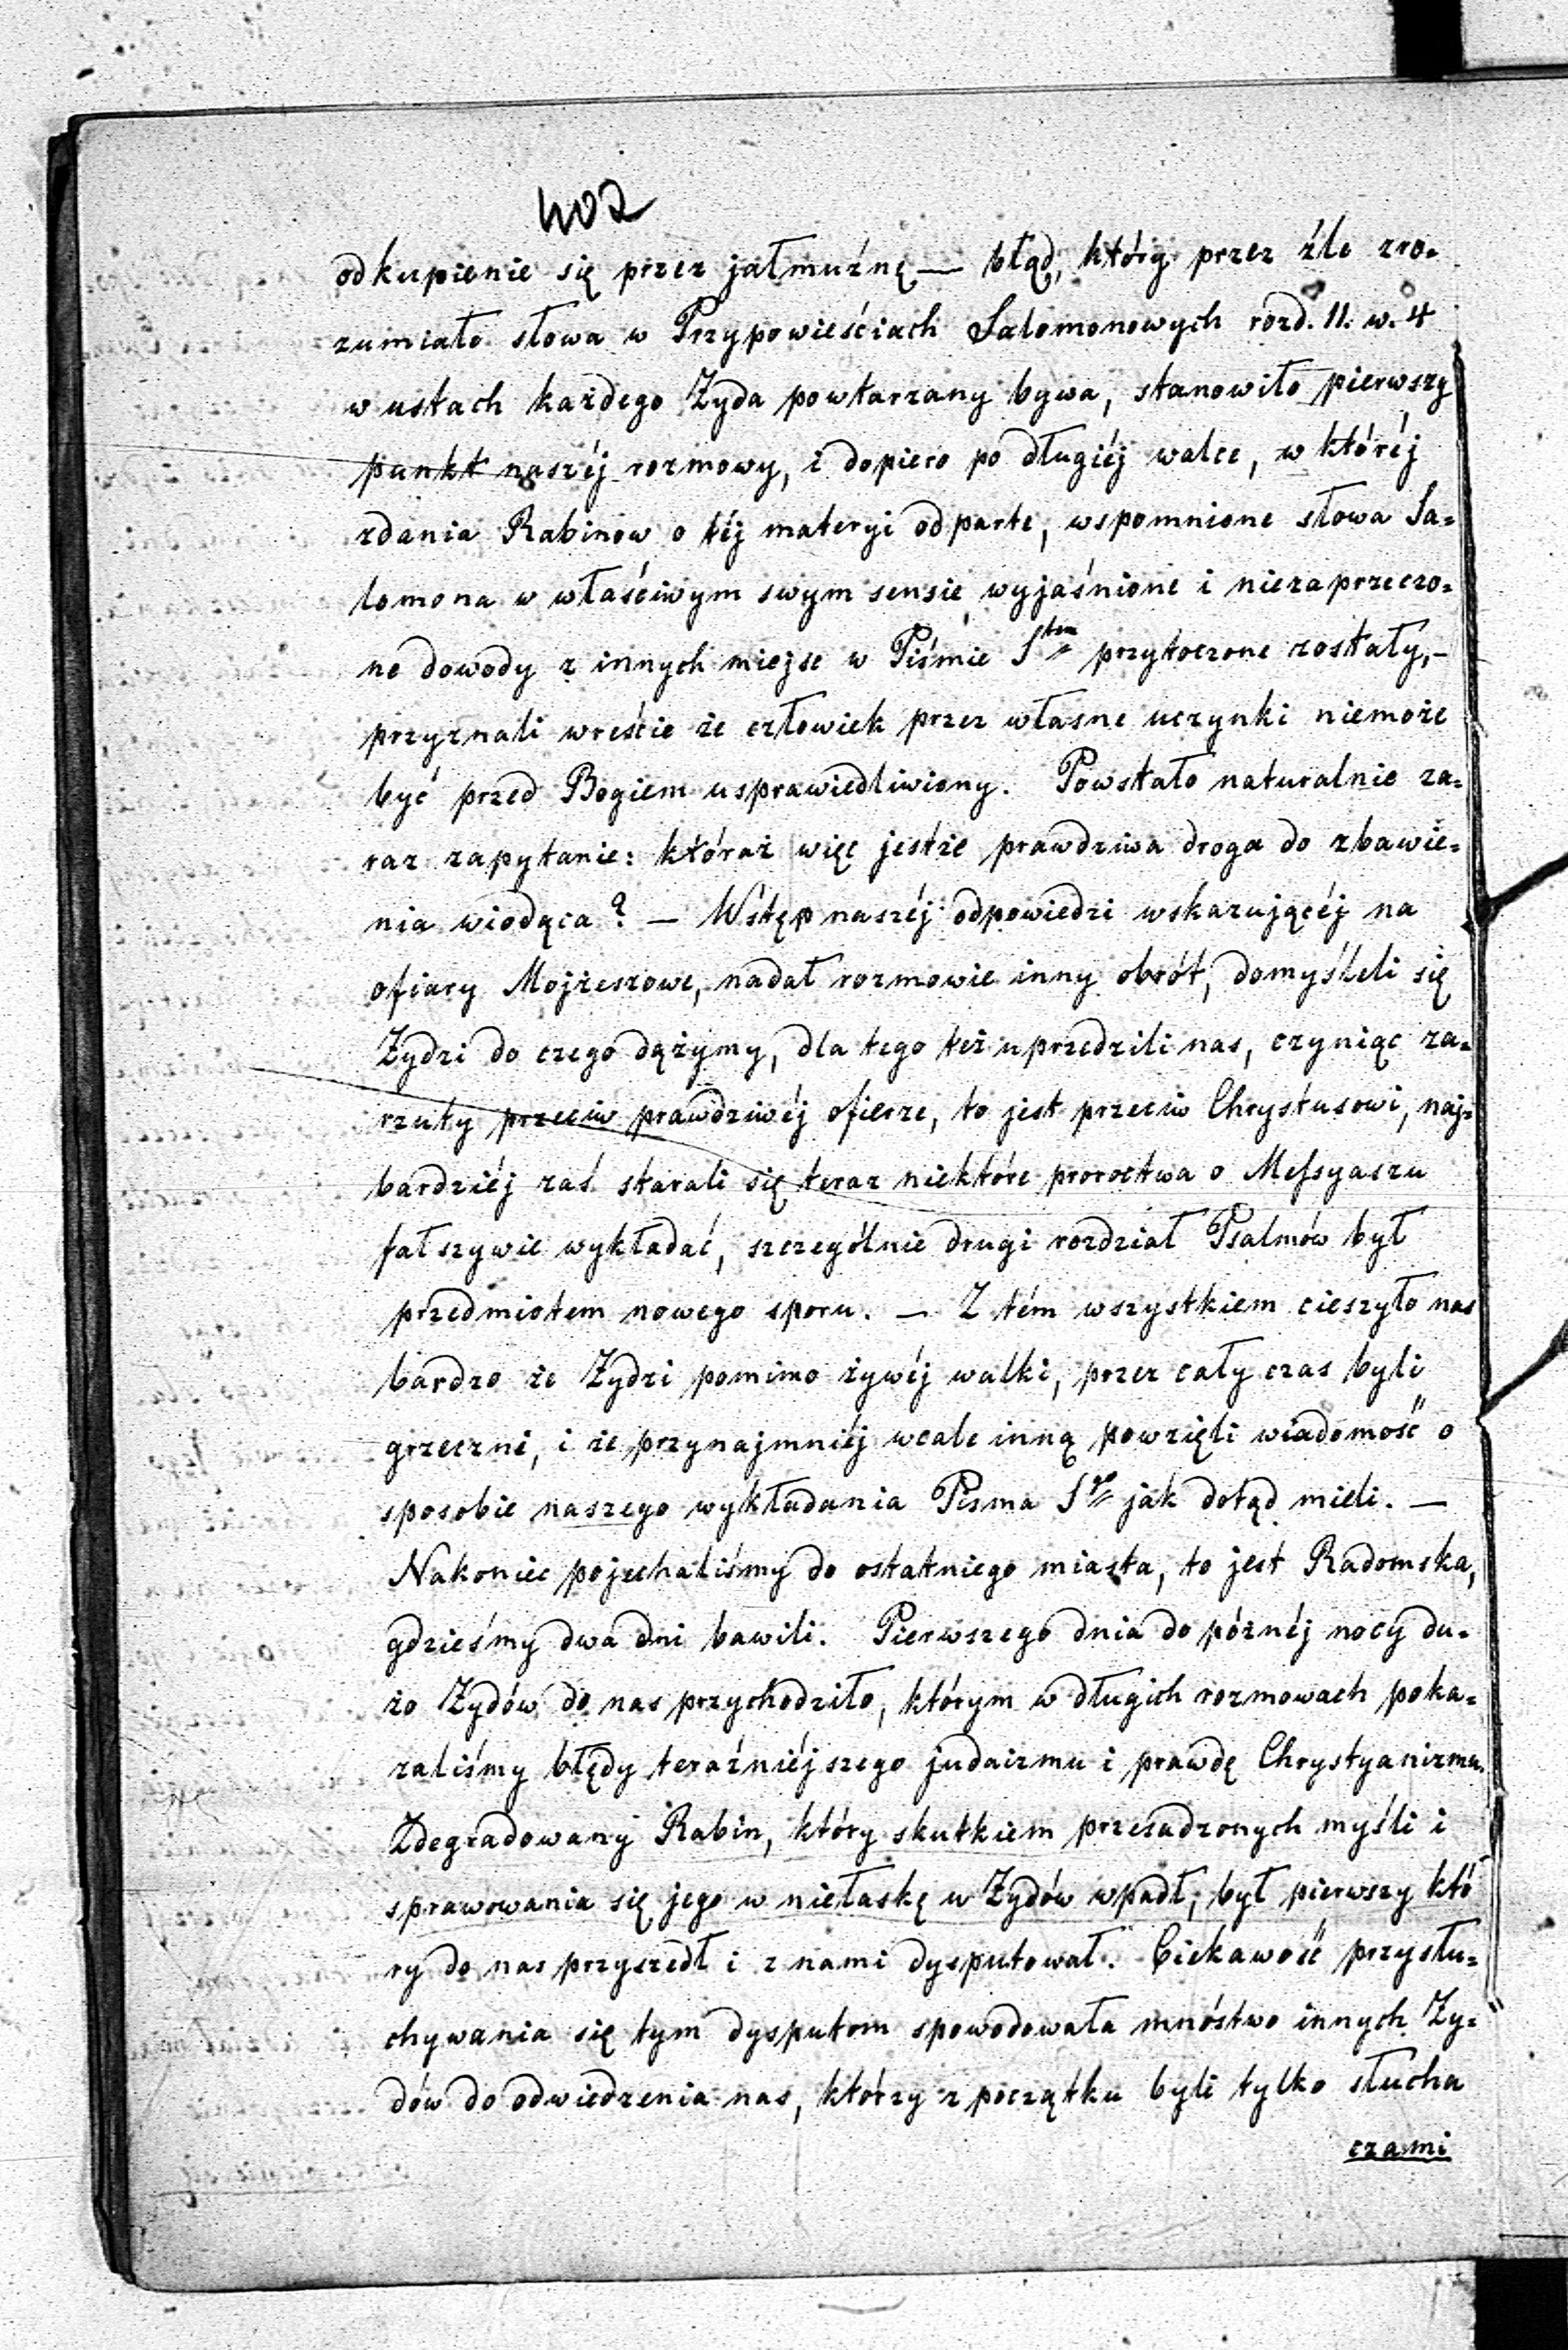 402
odkupienie się przez jałmużnę — błąd, który przez źle zro-
zumiało słowa w Przypowieściach Salomonowych rozd. 11. w. 4
w ustach każdego Żyda powtarzany bywa, stanowiło pierwszy
punkt naszéj rozmowy, i dopiero po długiéj walce, w któréj
zdania Rabinow o téj materyi odparte, wspomnione słowa Sa-
lomona w właściwym swym sensie wyjaśnione i niezaprzeczo-
ne dowody z innych miejsc w Piśmie Stem przytoczone zostały,–
przyznali wreście że człowiek przez własne uczynki niemoże
być przed Bogiem usprawiedliwiony. Powstało naturalnie za-
raz zapytanie: któraż więc jestże prawdziwa droga do zbawie-
nia wiodąca? — Wstęp naszéj odpowiedzi wskazującéj na
ofiary Mojżeszowe, nadał rozmowie inny obrót, domyśleli się
Żydzi do czego dążymy, dla tego też uprzedzili nas, czyniąc za-
rzuty przeciw prawdziwéj ofierze, to jest przeciw Chrystusowi, naj-
bardziéj zaś starali się teraz niektóre proroctwa o Messyaszu
fałszywie wykładać, szczególnie drugi rozdział Psalmów był
przedmiotem nowego sporu. — Z tém wszystkiem cieszyło nas
bardzo że Żydzi pomimo żywéj walki, przez cały czas byli
grzeczni, i że przynajmniéj wcale inną powzięli wiadomość o
sposobie naszego wykładania Pisma Sgo jak dotąd mieli. —
Nakoniec pojechaliśmy do ostatniego miasta, to jest Radomska,
gdzieśmy dwa dni bawili. Pierwszego dnia do późnéj nocy du-
żo Żydów do nas przychodziło, którym w długich rozmowach poka-
zaliśmy błędy teraźniéjszego judaizmu i prawdę Chrystyanizmu.
Zdegradowany Rabin, który skutkiem przesadzonych myśli i
sprawowania się jego w niełaskę u Żydów wpadł, był pierwszy któ
ry do nas przyszedł i z nami dysputował. Ciekawość przysłu-
chywania się tym dysputom spowodowała mnóstwo innych Ży-
dów do odwiedzenia nas, którzy z początku byli tylko słucha
czami